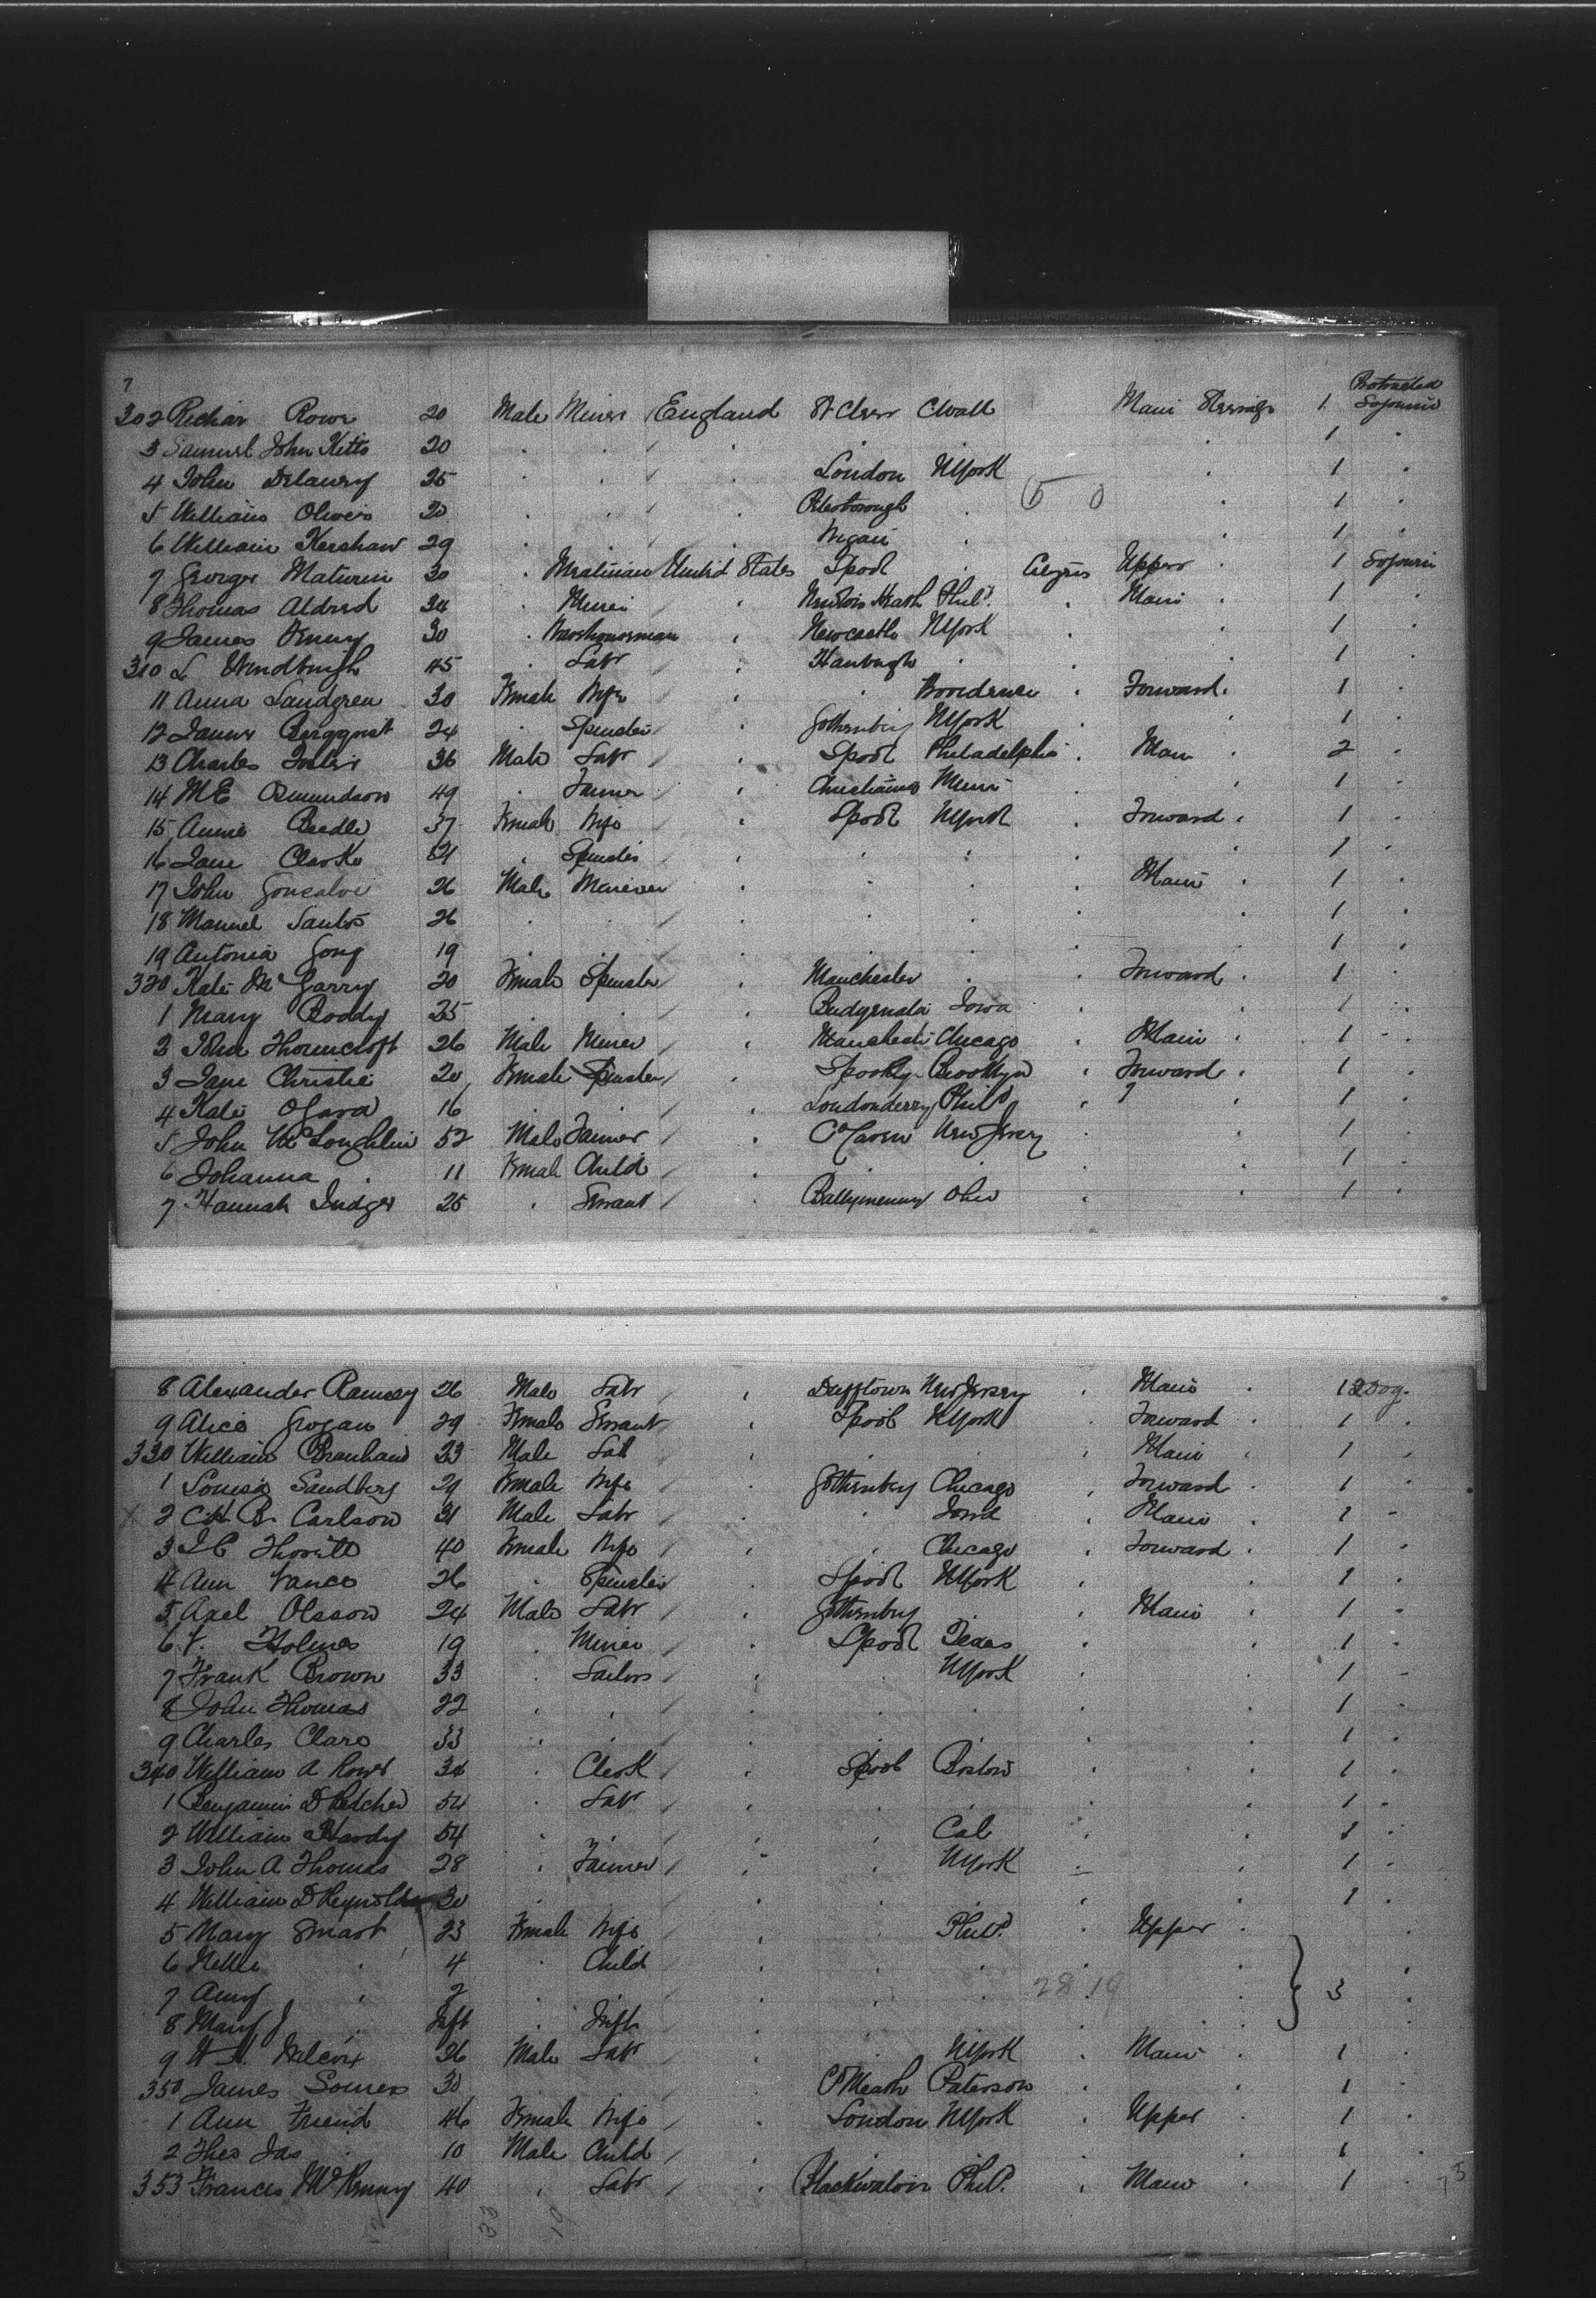 7 Protracted
302 Richar Rowe 20 Male Miner England St Cleer Cwall Main Steerage 1 Sojourn
3 Samuel John Kitto 20 1
4 John Delaney 25 London NYork 1
5 William Olivers 20 Peterborough 5 0 1
6 William Kershaw 29 Wigan 1
7 George Maturin 30 United States Lpool Upper 1 Sojourn
8 Thomas Aldred 34 Miner Heath Phil. Main 1
9 James Kenny 30 Newcastle NYork 1
310 L 45 Labr Hamburgh 1
11 Anna Landgren 30 Female Wife Providence Forward 1
12 Bergquist 24 Spinster Gothenburg NYork 1
13 Charles 36 Male Labr Lpool Philadelphia Main 2
14 M E Osmundson 49 Farmer Minn 1
15 Annie Beedle 37 Female Wife Lpool NYork Forward 1
16 Jane Clarke 1
17 John Goncalve 26 Male Mariner Main 1
18 Manuel Santos 26 1
19 Antonia Gong 19 1
320 Kate McGarry 20 Female Spinster Manchester Forward 1
1 Mary Boddy 25 Iowa 1
2 John Thorncroft 26 Male Miner Manchester Chicago Main 1
3 Jane Christie 20 Female Spinster Brooklyn Forward 1
4 Kate Ogara 16 Londonderry Phil 1
5 John McLoughlin 52 Male Farmer Co Cavan New Jersey 1
6 Johanna 11 Female Child 1
7 Hannah Judge 25 Servant Ballymenny Ohio 1
8 Alexander Ramsay 26 Male Labr Dufftown New Jersey Main 1
9 Alice Grogan 29 Female Servant Lpool NYork Forward 1
330 William Branhand 23 Male Lab Main 1
1 Louisa Sandberg 29 Female Wife Gothenburg Chicago Forward 1
2 C H B. Carlson 21 Male Labr Iowa Main 1
3 40 Female Wife Chicago Forward 1
4 Ann Vance 26 Spinster Lpool NYork 1
5 Axel Olsson 24 Male Labr Gothenburg Main 1
6 Holmes 19 Miner Lpool Texas 1
7 Frank Brown 33 Sailors NYork 1
8 John Thomas 22 1
9 Charles Claro 33 1
340 William A Rowe 34 Clerk Lpool Boston 1
1 Benjamin D 54 Labr 1
2 William Hardy 54 Cal 1
3 John A Thomas 28 Farmer NYork 1
4 William D Reynolds 30 1
5 Mary Smart 23 Female Wife Phil. Upper
6 Nellie 4 Child
7 Amy 2 28 19 3
8 Mary J Inft Inft
9 Wilcox 26 Male Labr NYork Main 1
350 James Somers 30 Co Meath Paterson 1
1 Ann Friend 46 Female Wife London NYork Upper 1
2 Theo Jas 10 Male Child 1
353 Frances McKenny 40 Labr Phil. Main 1